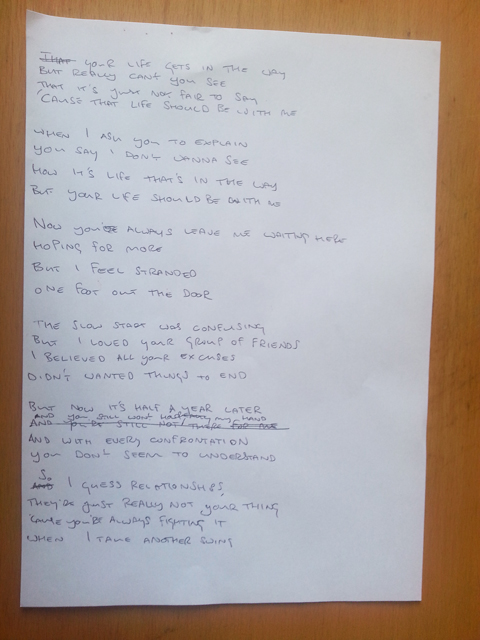 THAT YOUR LIFE GETS IN THE WAY
BUT REALLY CAN'T YOU SEE
THAT IT'S JUST NOT FAIR TO SAY
'CAUSE THAT LIFE SHOULD BE WITH ME
WHEN I ASK YOU TO EXPLAIN
YOU SAY I DON'T WANNA SEE
HOW IT'S LIFE THAT'S IN THE WAY
BUT YOUR LIFE SHOULD BE WITH ME
NOW YOU ALWAYS LEAVE ME WAITING HERE
HOPING FOR MORE
BUT I FEEL STRANDED
ONE FOOT OUT THE DOOR
THE SLOW START WAS CONFUSING
BUT I LOVED YOUR GROUP OF FRIENDS
I BELIEVED ALL YOUR EXCUSES
DIDN'T WANTED THINGS TO END
BUT NOW IT'S HALF A YEAR LATER
AND YOU STILL WON'T HOLD MY HAND
AND YOU'RE STILL NOT THERE FOR ME
AND WITH EVERY CONFRONTATION
YOU DON'T SEEM TO UNDERSTAND
SO
AND I GUESS RELATIONSHIPS,
THEY'RE JUST REALLY NOT YOUR THING
'CAUSE YOU'RE ALWAYS FIGHTING IT
WHEN I TAKE ANOTHER SWING